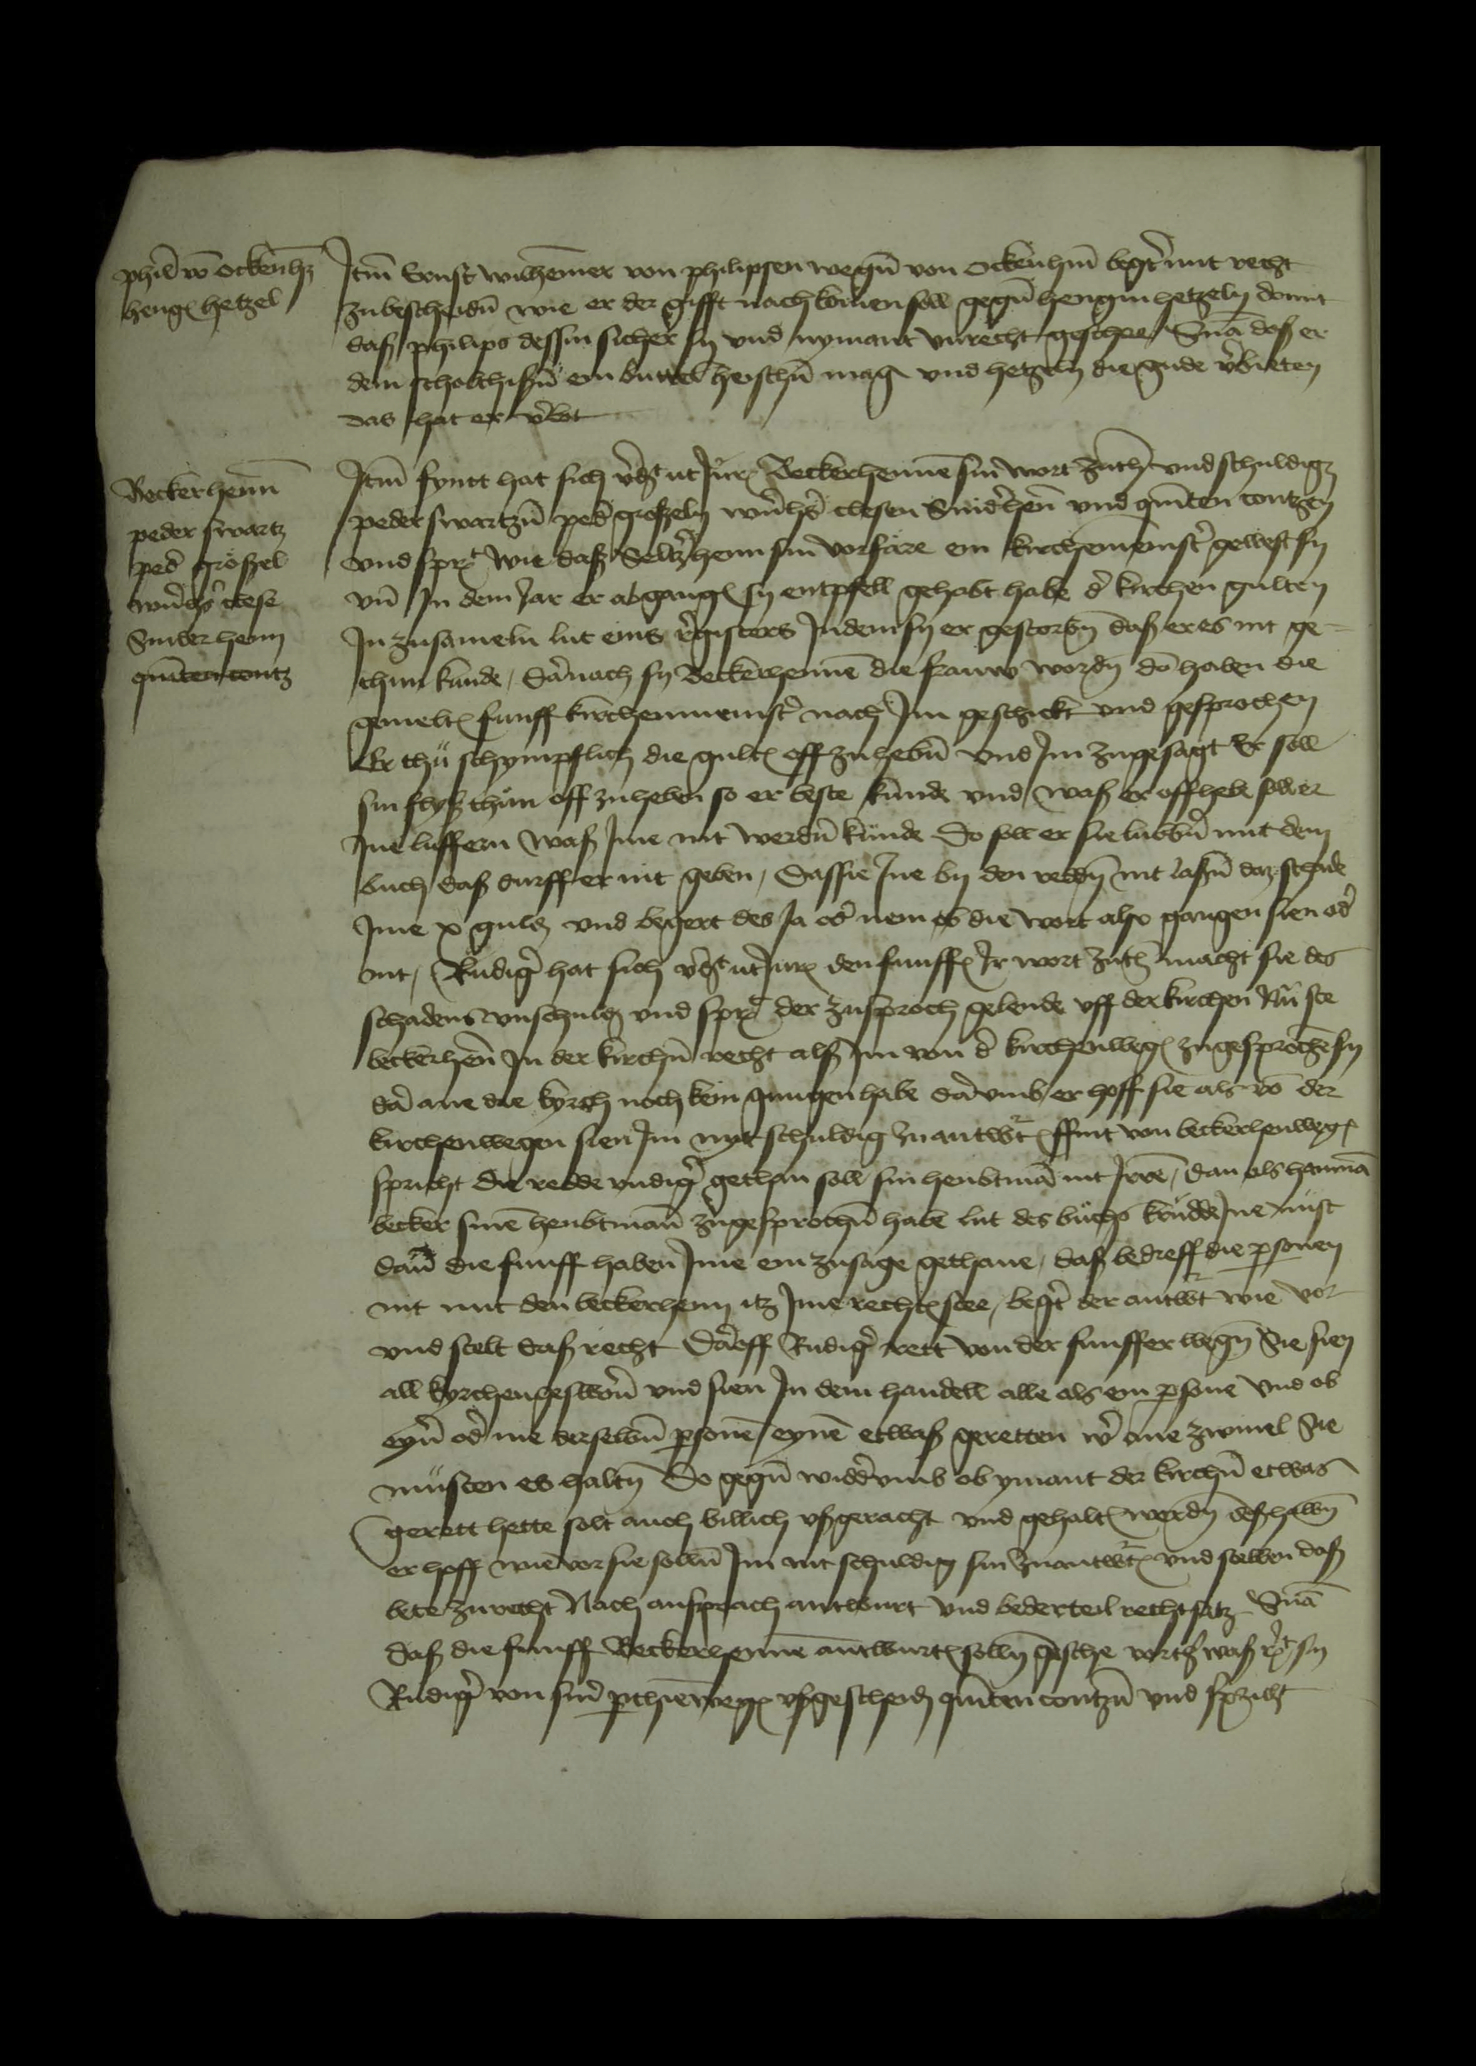 phil vō Ockenhz
heng hetzel
Itm Ernst wilhemer von philipsen wegn von Ockenhm begt mit recht
zubescheidn wie er der gifft nachkomen soll gegn hengin hetzeln domit
daß philips dessin sicher sy und nymant unrecht geschee Snā daß er
dem scholthißn ein buttel heischn mag und hetzeln die gude vbieten
das hat er vbot
Beckerhenn
peder swartz
ped großel
clese
Snider henn
qinten contz
Itm fyntt hat sich vdgt ut Jur Beckerhenne sin wort zuth und schuldigt
peder swartzn ped großeln clesen Snidhen und qinten contzen
und spr wie daß Seltzhenn sin vorfare ein kirchenmeinst gewest sy
vn In dem Jar er abgang sy entpfell gehabt habe d kirchen gulten
In zusameln lut eins rgisters Indem sy er gestorbn daß er es nt ge-
thun kunde, Darnach sy Beckerhenne die frauw wordn do haben die
gemelt funff kirchenmeinst nach Im geschickt und gesprochen
Er thu schympflich die gult off zuhebn und Im zugesagt Er soll
sin flyß thun off zuheben so er beste kunde und waß er offhebe soll er
Ine liffern waß Ime nit werdn kunde So soll er sie mit dem
buch daß durff er nit geben, Das sie Ine by den reddn nt laßn daz schade
Ime x guld und begert des Ja od nein ob die wort also gangen sien od
nit, Rudig hat sich vdgt ut Jur den funff Ir wort zuth macht sie des
schadens unschuld und spr der zusproch gelende uff der kirchen Nu ste
beckerhen In der kirchn recht alß Im von d kirchenweg zugesproche sy
da ane die kyrch noch kein gnugen habe darumb er hoff sie als vō der
kirchenwegen sien Im nyt schuldig zuantwt ffint von beckerhenweg
spricht Die redde rudig gethan soll sin heubtmā nit Irre, dan als henmā
becker sinē heubtmān zugesprochn habe lut des buchs krudde Ine nust
dan die funff haben Ime ein zusage gethane, daß bedreff die psonen
nit mit den beckerhenn itz Ime recht stee, begt der antwt wie vor
und stelt daß recht Daroff Rudig rett von der funffer wegn Sie sien
all kyrchengesworn und sien In dem handell alle als ein psone und ob
eyn od me derselbn psone eynē etwaß geretten w ane zwinel Sie
musten es haltn Do gegn widdumb ob ymant der kirchn etwas
gerett hette solt auch billich ußgeracht und gehalt werdn deßhalbn
er hoff wie vor sie solln Im nit schuldig sin zuantwt und stelten daß
bete zurecht Nach ansprach antwurt und bederteil rechtsatz Snā
daß die funff Beckerhenne antwurt solln gesche vorth waß rt sy
Rudig von sin pthienweg ußgescheid qinten contzn und spricht